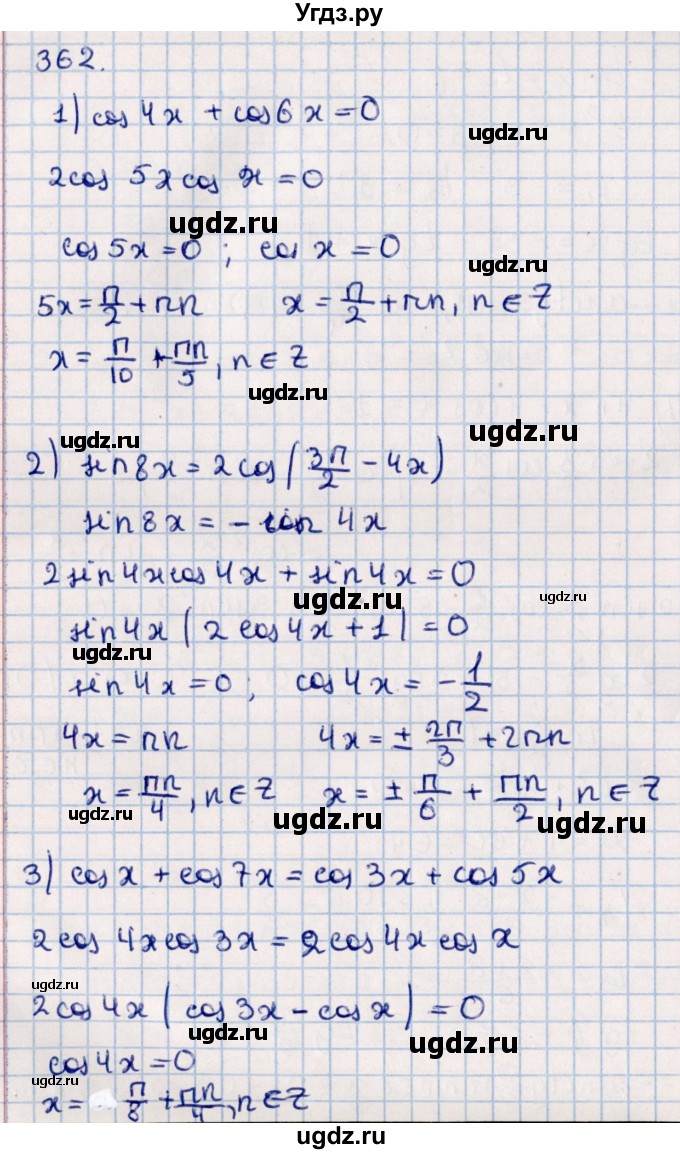 Угдз.ру
362.
1) cos 4x + cos 6x = 0
ugdz.ru
2cos 5x cos x = 0
ugdz.ru
cos 5x = 0 ; cos x = 0
ugdz.ru
5x = π/2 + πn    x = π/2 + πn, n ∈ Z
x = π/10 + πn/5, n ∈ Z
ugdz.ru
ugdz.ru
ugdz.ru
2) sin 8x = 2 cos (3π/2 - 4x)
sin 8x = - sin 4x
2 sin 4x cos 4x + sin 4x = 0
ugdz.ru
ugdz.ru
sin 4x ( 2 cos 4x + 1 ) = 0
ugdz.ru
sin 4x = 0 ;   cos 4x = - 1/2
4x = πn    4x = ± 2π/3 + 2πn
x = πn/4, n ∈ Z    x = ± π/6 + πn/2, n ∈ Z
ugdz.ru
ugdz.ru
ugdz.ru
3) cos x + cos 7x = cos 3x + cos 5x
2 cos 4x cos 3x = 2 cos 4x cos x
ugdz.ru
2 cos 4x ( cos 3x - cos x ) = 0
ugdz.ru
ugdz.ru
cos 4x = 0
ugdz.ru
x = π/8 + πn/4, n ∈ Z
ugdz.ru